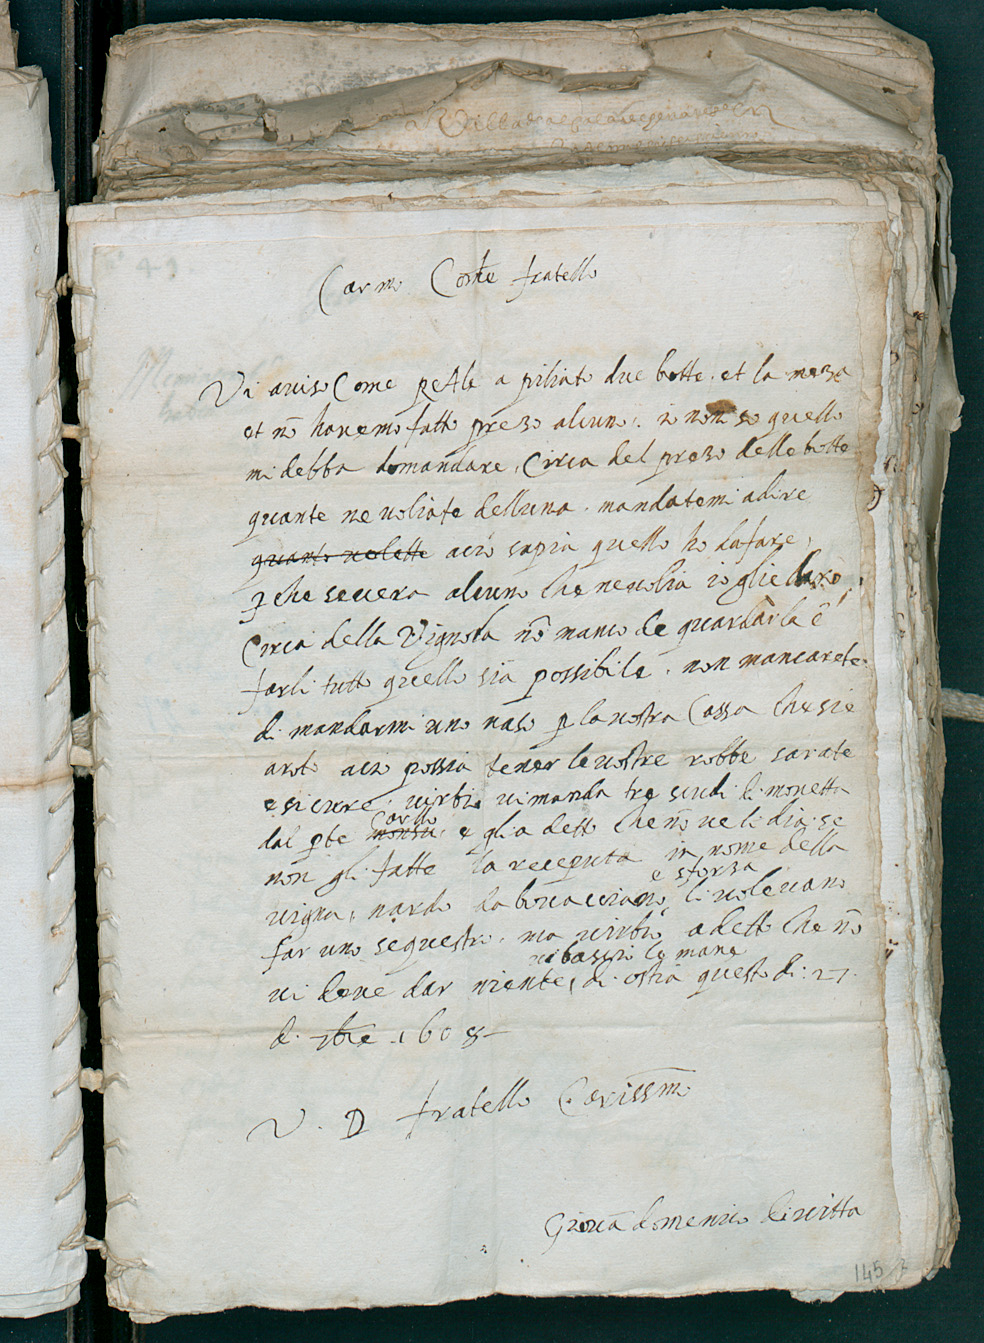 Carmo Come fratello
Vi aviso Come pe Ale a piliato due botte. et la meza
et nõ havemo fatto prezo alcuno. io non so quello
mi debba domandare, Circa del prezo delle botte
quante ne voliate delluna. mandatemi a dire
quanto volette acio sapia quello ho da fare,
che se vera alcuno che ne volia io glie daro,
Circa della Vignola nõ manco de guardarla e
farli tutto quello sia possibile. non mancarete
di mandarmi uno naso p la vostra Cassa che sie
arot acio possia tener le vostre robbe sarate
e sicure, virbio vi manda tre scudi di monetta
dal pte monsu, e gli a detto che nõ ve li dia se
Cardo
non gli fatte la receputa in nome della
vigna, nardo da bovacciano, li volevano
e sforza
far uno sequestro. ma virbio a detto che nõ
vi deve dar niente, di ostia questo di 27
vi bascio le mane
di 7bre 1608
V. D fratello Carissmo
Giovã domenico de vitta
145